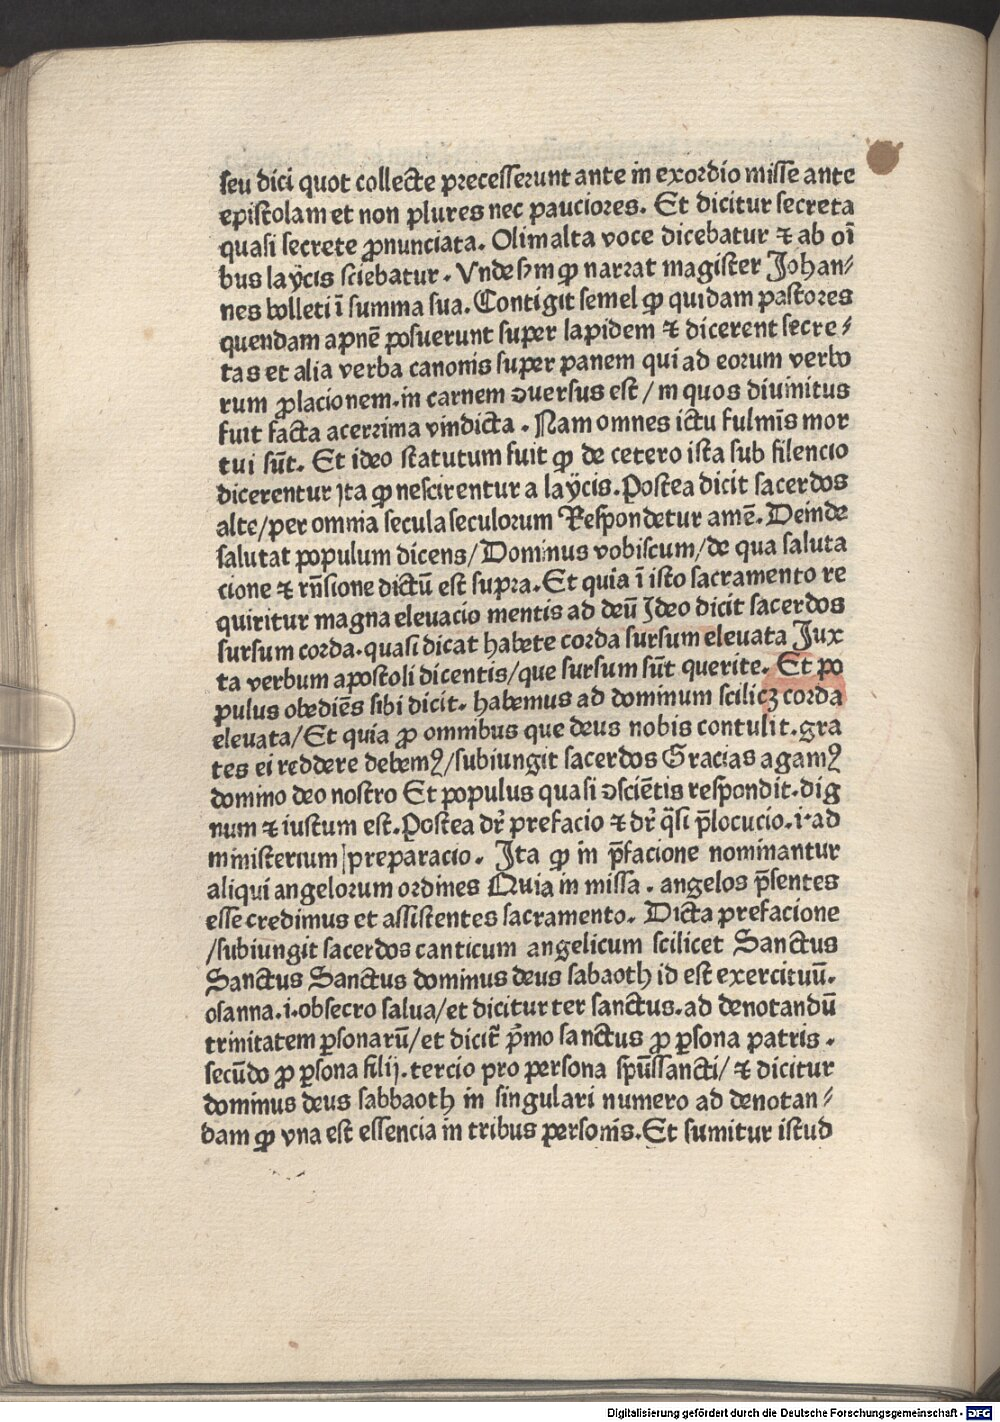 seu dici quot collecte precesserunt ante in exordio misse ante
epistolam et non plures nec pauciores. Et dicitur secreta
quasi secrete ꝓnunciata. Olim alta voce dicebatur ⁊ ab oı̄
bus laÿcis sciebatur. Vnde ꝙ narrat magister Johan⸗
nes bolleti ī summa sua. Contigit semel ꝙ quidam pastores
quendam apnē posuerunt super lapidem ⁊ dicerent secre⸗
tas et alia verba canonis super panem qui ad eorum verbo
rum ꝓlacionem. in carnem ꝯuersus est / in quos diuinitus
fuit facta acerrima vindicta. Nam omnes ictu fulmīs mor
tui sūt. Et ideo statutum fuit ꝙ de cetero ista sub silencio
dicerentur Jta ꝙ nescirentur a laÿcis. Postea dicit sacerdos
alte/per omnia secula seculorum Respondetur amē. Deinde
salutat populum dicens/Dominus vobiscum/de qua saluta
cione ⁊ rn̄sione dictū est supra. Et quia ī isto sacramento re
quiritur magna eleuacio mentis ad deū Jdeo dicit sacerdos
sursum corda. quasi dicat habete corda sursum eleuata Jux
ta verbum apostoli dicentis/que sursum sūt querite. Et po
pulus obediēs sibi dicit. habemus ad dominum scilicꝫ corda
eleuata/Et quia ꝓ omnibus que deus nobis contulit. gra
tes ei reddere debemꝰ/subiungit sacerdos Gracias agamꝰ
domino deo nostro Et populus quasi ꝯsciētis respondit. dig
num ⁊ iustum est. Postea dr̄ prefacio ⁊ dr̄ q̄si p̄locucio. i. ad
ministerium preparacio. Jta ꝙ in p̄facione nominantur
aliqui angelorum ordines Quia in missa. angelos p̄sentes
esse credimus et assistentes sacramento. Dicta prefacione
/subiungit sacerdos canticum angelicum scilicet Sanctus
Sanctus Sanctus dominus deus sabaoth id est exercituū.
osanna. i. obsecro salua/et dicitur ter sanctus. ad denotandū
trinitatem ꝑsonarū/et dicit̄ p̄mo sanctus ꝓ ꝑsona patris.
secūdo ꝓ ꝑsona filij. tercio pro persona spūssancti/ ⁊ dicitur
dominus deus sabbaoth in singulari numero ad denotan⸗
dam ꝙ vna est essencia in tribus personis. Et sumitur istud
Digitalisierung gefördert durch die Deutsche Forschungsgemeinschaft - DFG